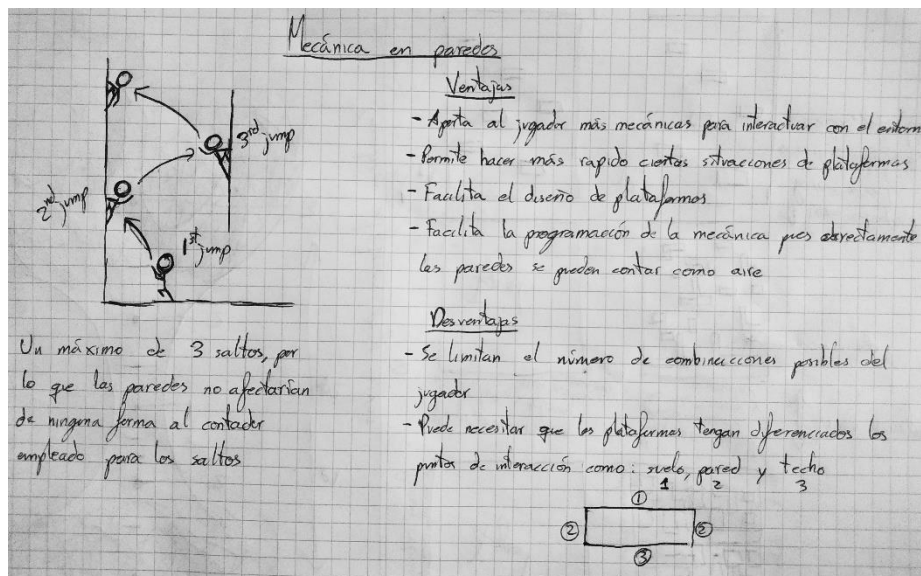 Mecánica en paredes
3rd jump
2nd jump
1st jump
Un máximo de 3 saltos, por
lo que las paredes no afectarían
de ninguna forma al contador
empleado para los saltos
Ventajas
- Aporta al jugador más mecánicas para interactuar con el entorn
- Permite hacer más rapido ciertas situacciones de plataformas
- Facilita el diseño de plataformas
- Facilita la programacción de la mecánica pues
las paredes se pueden contar como aire
Desventajas
- Se limitan el número de combinacciones posibles del
jugador
- Puede necesitar que las plataformas tengan diferenciados los
puntos de interacción como: suelo, pared y techo
1 2 3
1
2 2
3